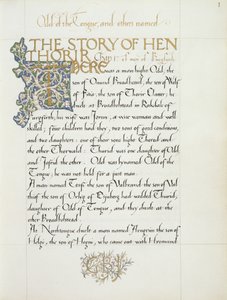 1
Odd of the Tongue, and others named
THE STORY OF HEN
THORIR. Chap. I. of men of Burgfirth
THERE was a man hight Odd, the
son of Onund Broadbeard, the son of Wolf
of Fitia, the son of Thorir
dwelt at Broadlairstead in Rekdale of
Burgfirth; his wife was Jorun, a wise woman and well
skilled; four children had they, two sons of good conditions,
and two daughters: one of their sons hight Thorod and
the other Thorwald: Thurid was one daughter of Odd
and Jofrid the other. Odd was bynamed Odd of the
Tongue; he was not held for a just man.
A man named Torfi the son of Valbrand, the son of Val
thiof, the son of Orlyg of had wedded Thurid,
daughter of Odd of Tongue, and they dwelt at the
other Broadlairstead.
At Northtongue dwelt a man named Arngrim the son of
Helgi, the son of Hogni, who came out with Hromund